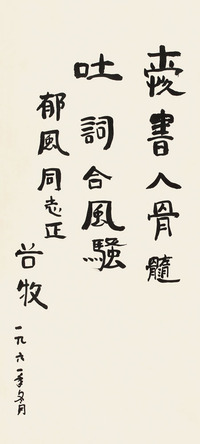 爱書入骨髓
吐詞合風騷
郁風同志正
谷牧
一九六一年